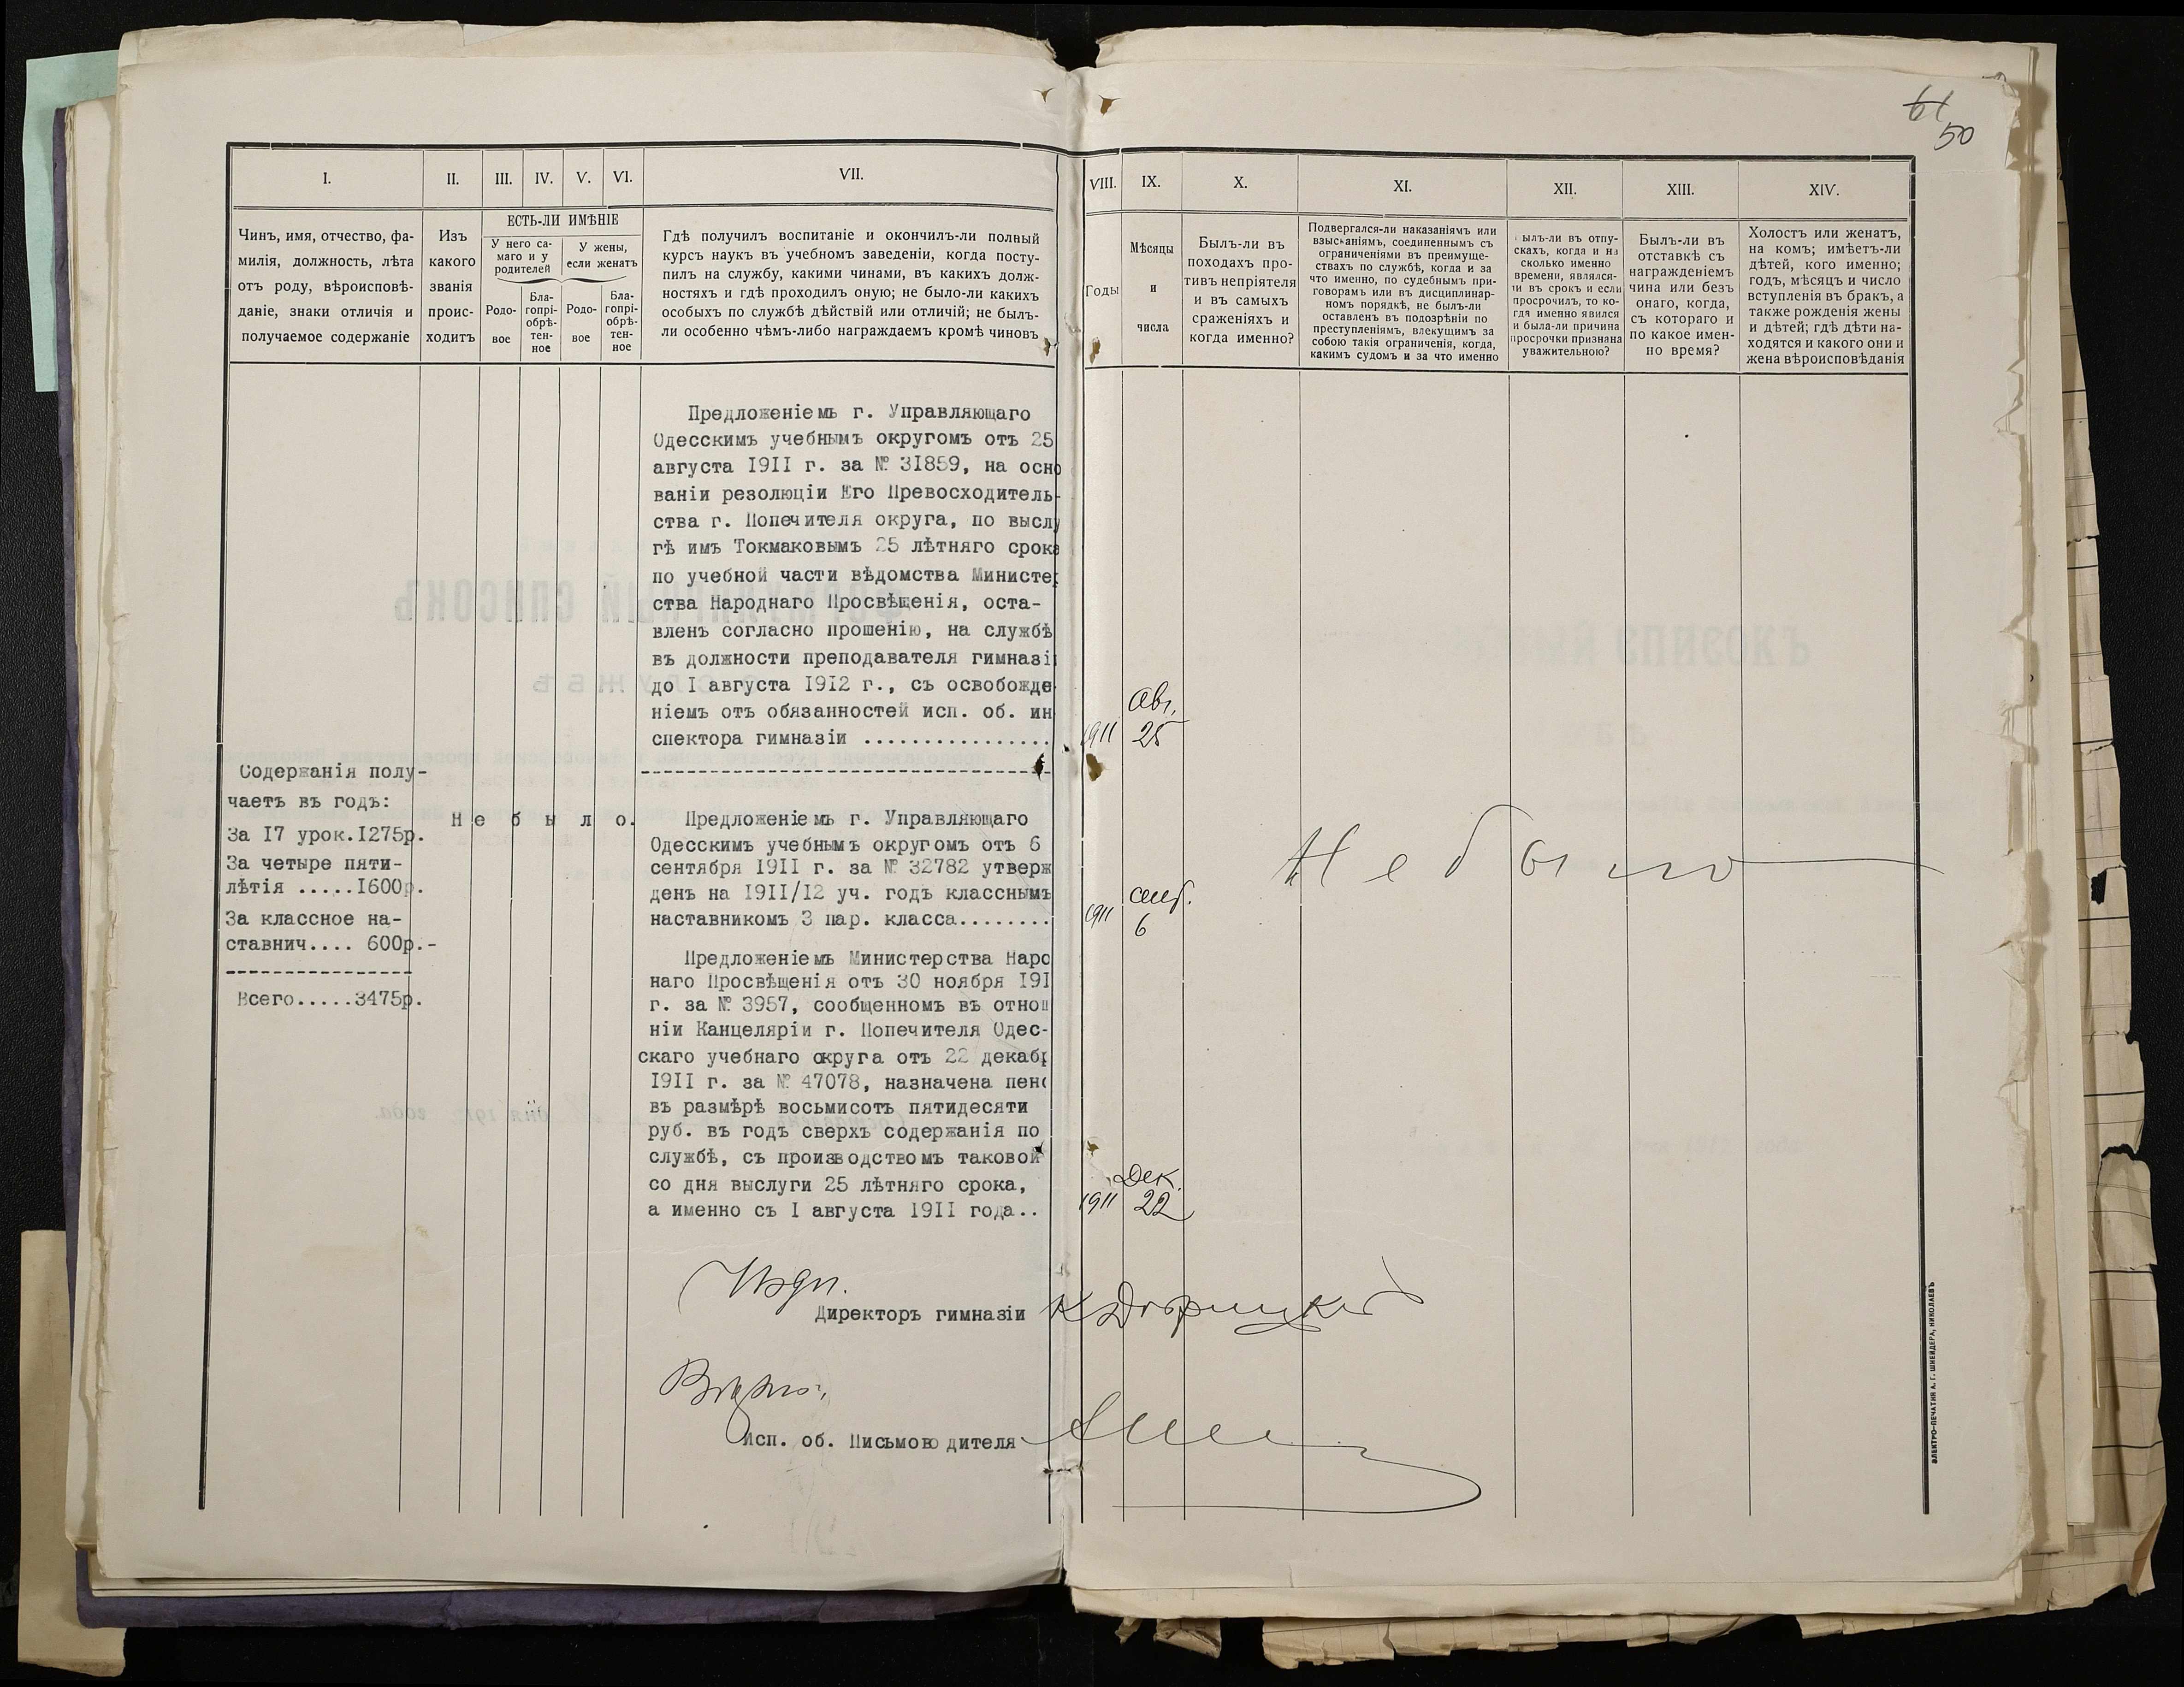 61
50
I.
II.
III.
IV.
V.
VI.
VII.
VIII.
IX.
X.
XI.
XII.
XIII.
XIV.
Чинъ, имя, отчество, фа-
милія, должность, лѣта
отъ роду, вѣроисповѣ-
даніе, знаки отличія и
получаемое содержаніе
Изъ
какого
званія
проис-
ходитъ
ЕСТЬ-ЛИ ИМѢНІЕ
У него са-
маго и у
родителей
У жены,
если женатъ
Родо-
вое
Бла-
гопрі-
обрѣ-
тен-
ное
Родо-
вое
Бла-
гопрі-
обрѣ-
тен-
ное
Гдѣ получилъ воспитаніе и окончилъ-ли полный
курсъ наукъ въ учебномъ заведеніи, когда посту-
пилъ на службу, какими чинами, въ какихъ долж-
ностяхъ и гдѣ проходилъ оную; не было-ли какихъ
особыхъ по службѣ дѣйствій или отличій; не былъ-
ли особенно чѣмъ-либо награждаемъ кромѣ чиновъ
Годы
Мѣсяцы
и
числа
Былъ-ли въ
походахъ про-
тивъ непріятеля
и въ самыхъ
сраженіяхъ и
когда именно?
Подвергался-ли наказаніямъ или
взысканіямъ, соединеннымъ съ
ограниченіями въ преимуще-
ствахъ по службѣ, когда и за
что именно, по судебнымъ при-
говорамъ или въ дисциплинар-
номъ порядкѣ, не былъ-ли
оставленъ въ подозрѣніи по
преступленіямъ, влекущимъ за
собою такія ограниченія, когда,
какимъ судомъ и за что именно
ылъ-ли въ отпу-
скахъ, когда и на
сколько именно
времени, являлся-
ли въ срокъ и если
просрочилъ, то ко-
гда именно явился
и была-ли причина
просрочки признана
уважительною?
Былъ-ли въ
отставкѣ съ
награжденіемъ
чина или безъ
онаго, когда,
съ котораго и
по какое имен-
но время?
Холостъ или женатъ,
на комъ; имѣетъ-ли
дѣтей, кого именно;
годъ, мѣсяцъ и число
вступленія въ бракъ, а
также рожденія жены
и дѣтей; гдѣ дѣти на-
ходятся и какого они и
жена вѣроисповѣданія
Предложеніемъ г. Управляющаго
Одесскимъ учебнымъ округомъ отъ 25
августа 1911 г. за № 31859, на осно
ваніи резолюціи Его Превосходитель-
ства г. Попечителя округа, по выслу
гѣ имъ Токмаковымъ 25 лѣтняго срока
по учебной части вѣдомства Министер
ства Народнаго Просвѣщенія, оста-
вленъ согласно прошенію, на службѣ
въ должности преподавателя гимназі
до 1 августа 1912 г., съ освобожде
ніемъ отъ обязанностей исп. об. ин
спектора гимназіи ................
1911
Авг.
25
Содержанія полу-
чаетъ въ годъ:
За 17 урок.1275р.
За четыре пяти-
лѣтія .....1600р.
За классное на-
ставнич.... 600р.-
Всего.....3475р.
Не было.
Предложеніемъ г. Управляющаго
Одесскимъ учебнымъ округомъ отъ 6
сентября 1911 г. за № 32782 утверж
денъ на 1911/12 уч. годъ класснымъ
наставникомъ 3 пар. класса........
1911
сент.
6
Не было
Предложеніемъ Министерства Наро
наго Просвѣщенія отъ 30 ноября 191
г. за № 3957, сообщенномъ въ отнош
ніи Канцеляріи г. Попечителя Одес-
скаго учебнаго округа отъ 22 декабр
1911 г. за № 47078, назначена пенс
въ размѣрѣ восьмисотъ пятидесяти
руб. въ годъ сверхъ содержанія по
службѣ, съ производствомъ таковой
со дня выслуги 25 лѣтняго срока,
а именно съ 1 августа 1911 года..
1911
Дек.
22
Директоръ гимназіи
Вѣрно:
Исп. об. Письмоводителя
ЭЛЕКТРО-ПЕЧАТНЯ А. Г. ШНЕЙДЕРА, НИКОЛАЕВЪ